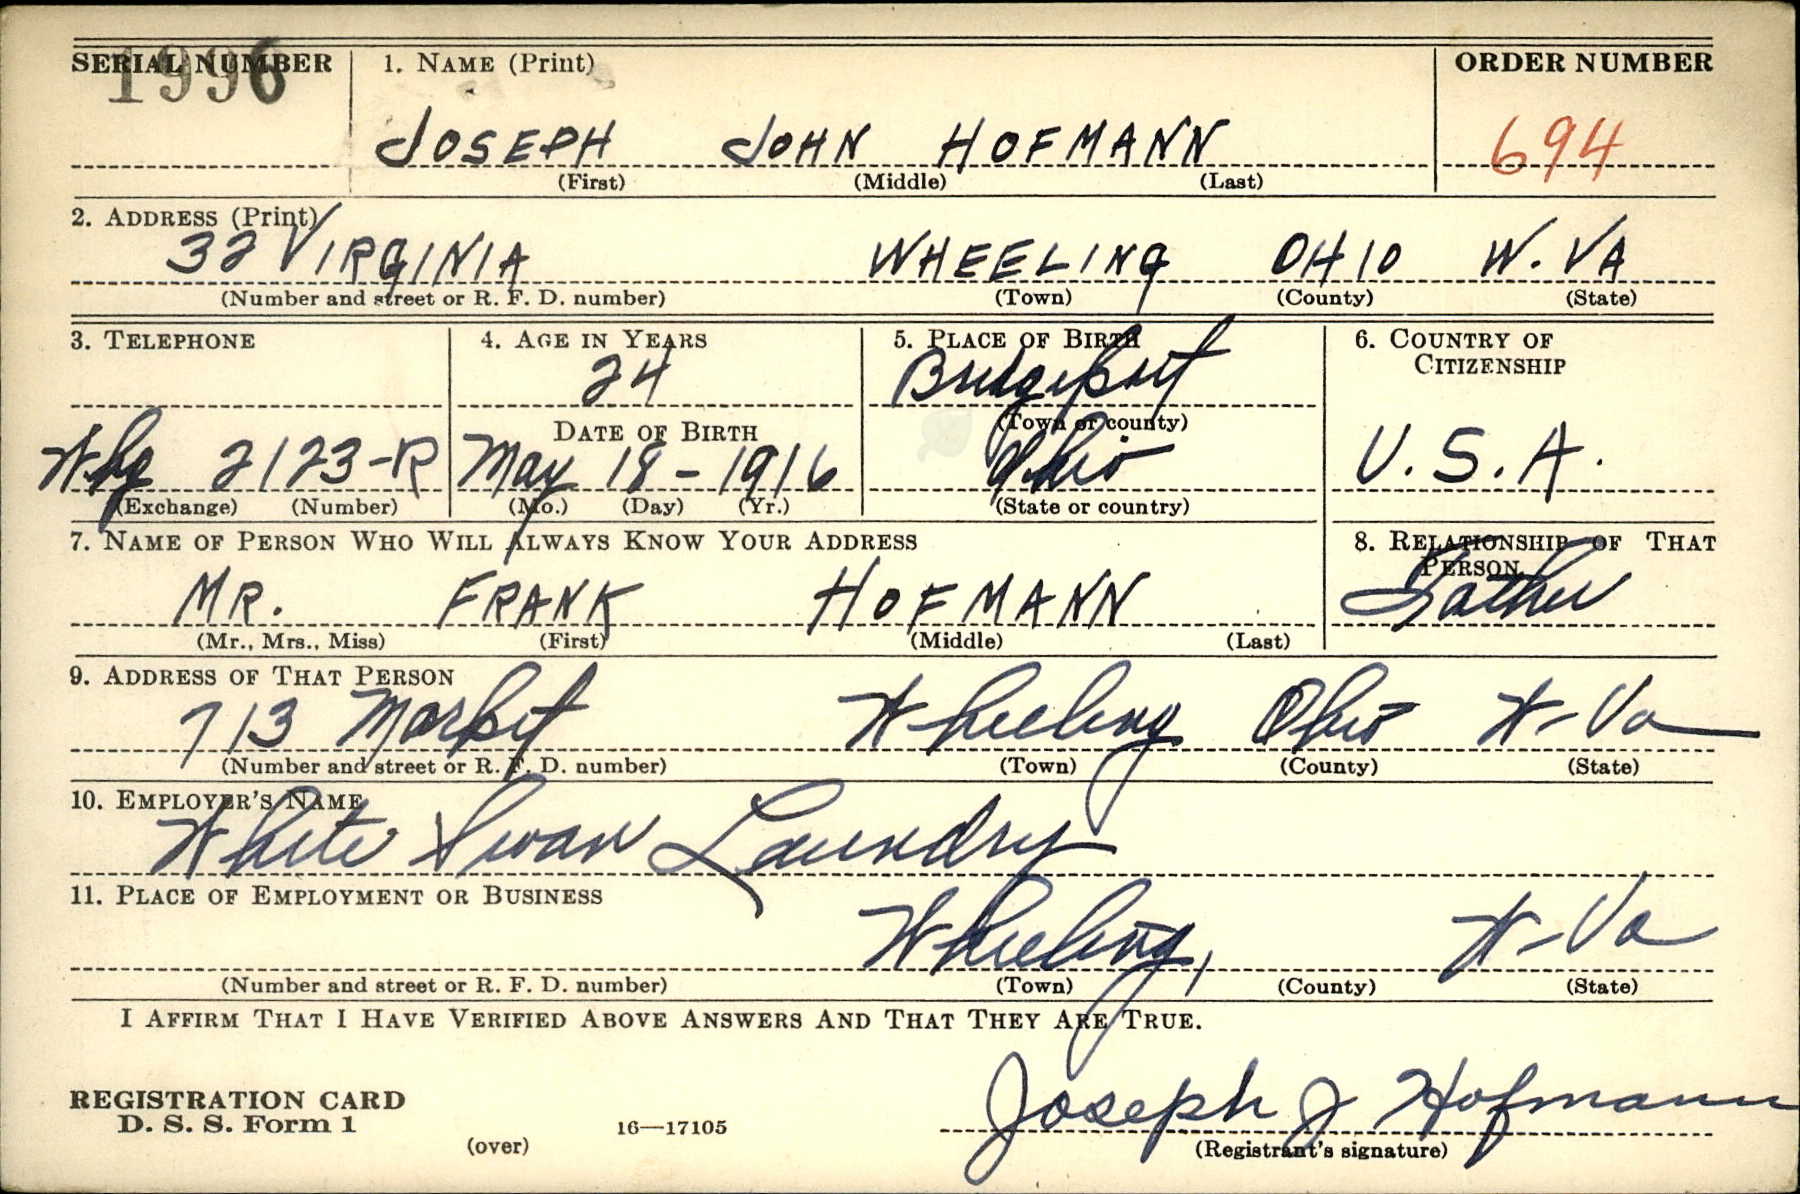 SERIAL NUMBER 1. NAME (Print) ORDER NUMBER
1996
JOSEPH JOHN HOFMANN 694
(First) (Middle) (Last)
2. ADDRESS (Print)
32 VIRGINIA WHEELING OHIO W. VA
(Number and street or R. F. D. number) (Town) (County) (State)
3. TELEPHONE 4. AGE IN YEARS 5. PLACE OF BIRTH 6. COUNTRY OF
CITIZENSHIP
24 Bridgeport
DATE OF BIRTH (Town or county)
Whg 2123-R May 18-1916 Ohio U.S.A.
(Exchange) (Number) (Mo.) (Day) (Yr.) (State or country)
7. NAME OF PERSON WHO WILL ALWAYS KNOW YOUR ADDRESS 8. RELATIONSHIP OF THAT
PERSON
MR. FRANK HOFMANN Father
(Mr., Mrs., Miss) (First) (Middle) (Last)
9. ADDRESS OF THAT PERSON
713 Market Wheeling Ohio W-Va
(Number and street or R. F. D. number) (Town) (County) (State)
10. EMPLOYER'S NAME
White Swan Laundry
11. PLACE OF EMPLOYMENT OR BUSINESS
Wheeling, W-Va
(Number and street or R. F. D. number) (Town) (County) (State)
I AFFIRM THAT I HAVE VERIFIED ABOVE ANSWERS AND THAT THEY ARE TRUE.
REGISTRATION CARD
D. S. S. Form 1 16—17105 Joseph J Hofmann
(over) (Registrant's signature)